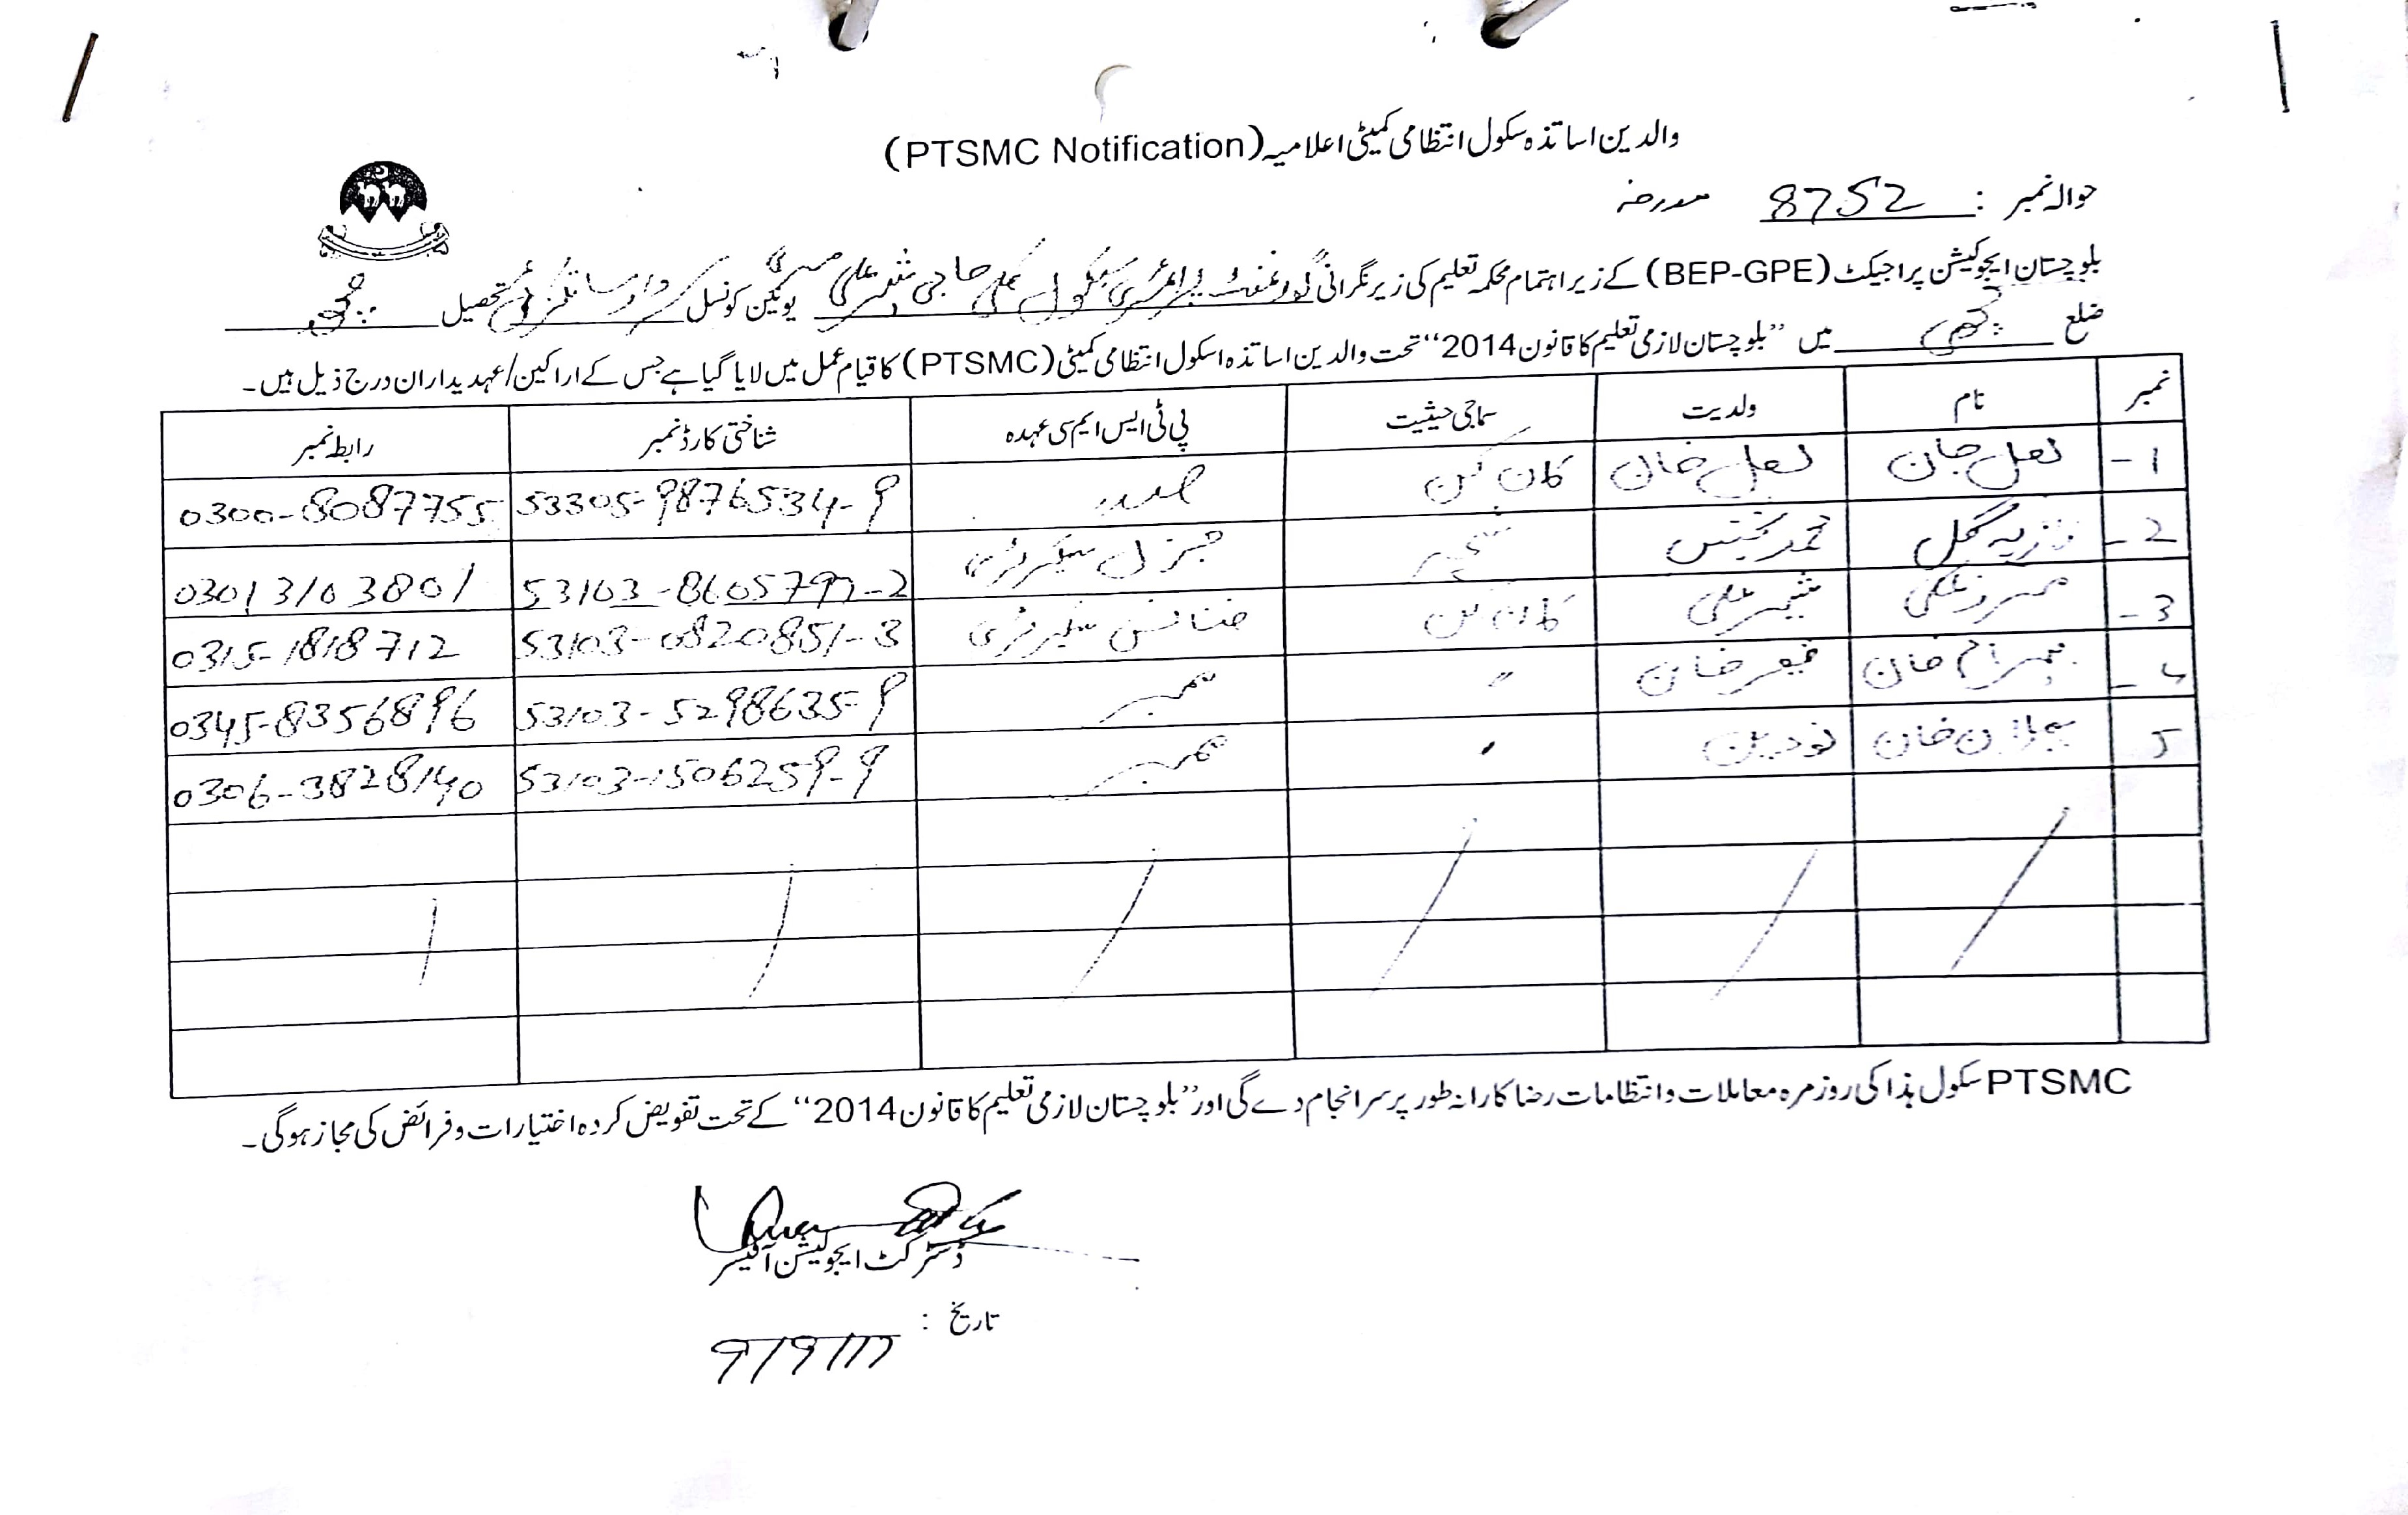 والدین اساتذہ سکول انتظامی کمیٹی اعلامیہ (PTSMC Notification)
حوالہ نمبر : 8752 مورخہ
بلوچستان ایجوکیشن پراجیکٹ (BEP-GPE) کے زیر اہتمام محکمہ تعلیم کی زیر نگرانی گورنمنٹ پرائمری سکول کلی حاجی شیر علی یونین کونسل تحصیل
ضلع میں ”بلوچستان لازمی تعلیم کا قانون 2014“ تحت والدین اساتذہ اسکول انتظامی کمیٹی (PTSMC) کا قیام عمل میں لایا گیا ہے جس کے اراکین/عہدیداران درج ذیل ہیں۔
نمبر نام ولدیت سماجی حیثیت پی ٹی ایس ایم سی عہدہ شناختی کارڈ نمبر رابطہ نمبر
1- لعل جان لعل خان کان کن صدر 53305-9876534-9 0300-8087755
2- نازیہ گل محمد ٹیچر جنرل سیکریٹری 53103-8605797-2 03013103801
3- علی شیر علی کان کن فنانس سیکریٹری 53103-0820851-3 0315-1818712
4- بہرام خان خان 〃 ممبر 53103-5298635-9 0345-8356896
5 خان نودین 〃 ممبر 53103-1506259-9 0306-3828140
PTSMC سکول ہذا کی روزمرہ معاملات و انتظامات رضا کارانہ طور پر سرانجام دے گی اور ”بلوچستان لازمی تعلیم کا قانون 2014“ کے تحت تفویض کردہ اختیارات و فرائض کی مجاز ہوگی۔
ڈسٹرکٹ ایجوکیشن آفیسر
تاریخ : 9/9/17